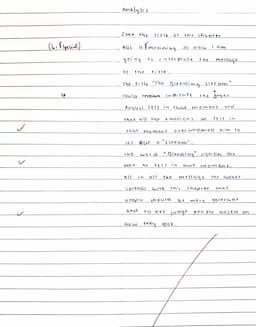 Analysis
Even the title of the chapter
has a meaning so now I am
going to interpretate the message
of the title.
The title "The Bleeding Scream"
could indicate the anger
August felt in that moment and
that all the emotions he felt in
that moment overwhelmed him to
let out a "Scream".
The word "Bleeding" signifies the
pain he felt in that moment.
All in all the message the author
spreads with this chapter that
people should be more tolerant
and to not judge people based on
how they look.